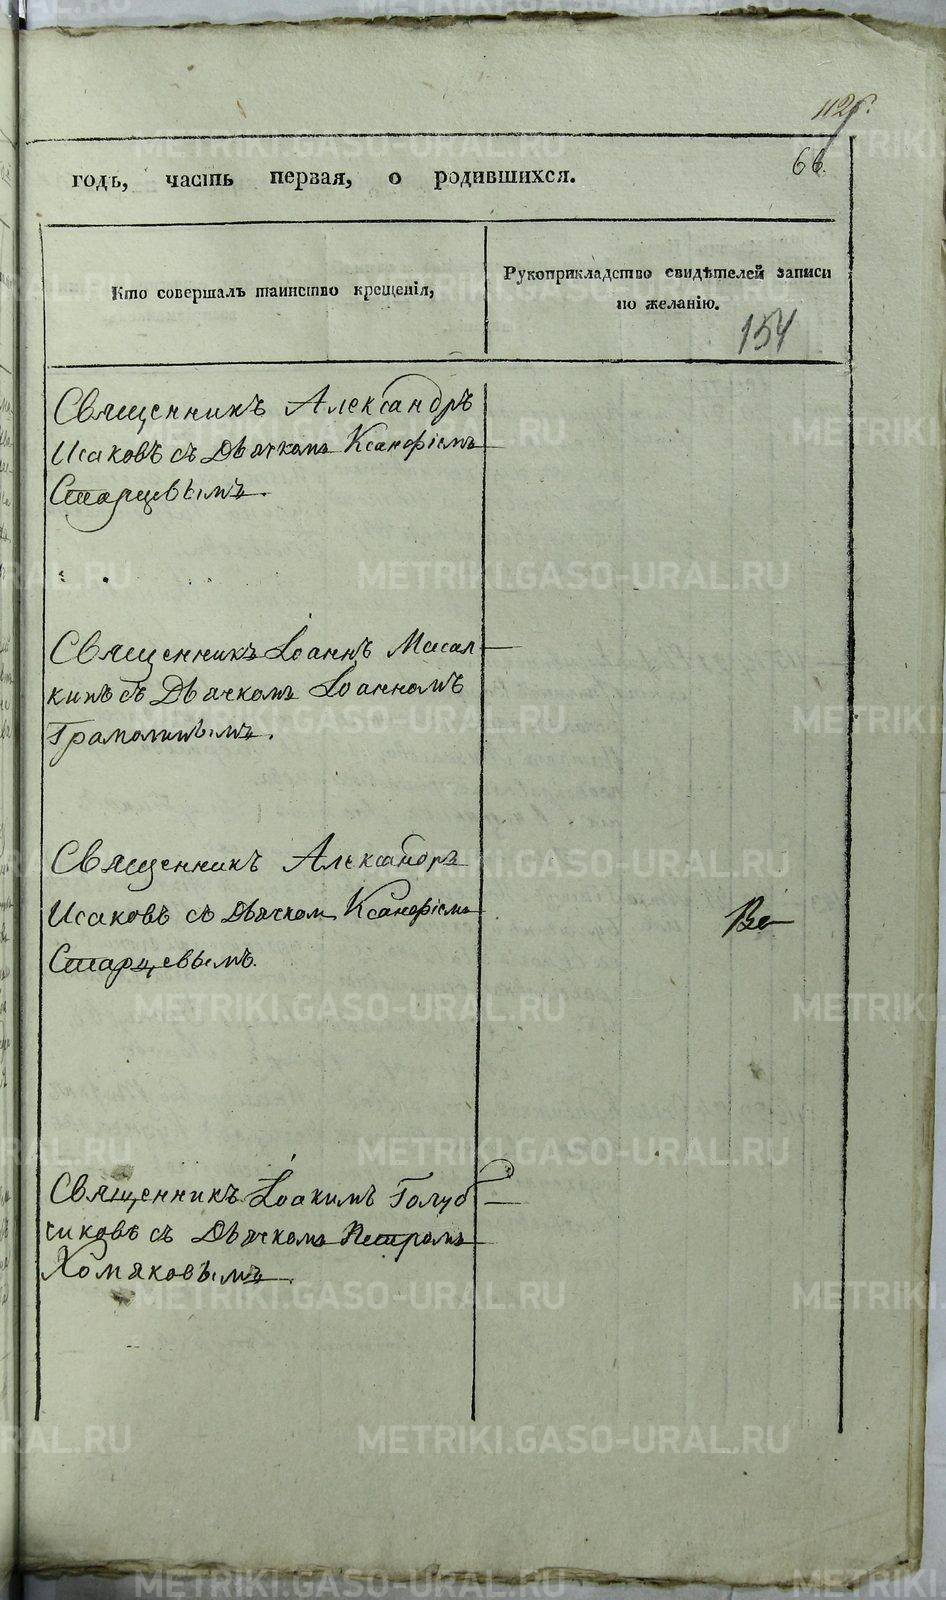 1125.
66.
годъ, часть первая, о родившихся.
Кто совершалъ таинство крещенія,
Рукоприкладство свидѣтелей записи
по желанію.
154
Священникъ Александръ
Исаковъ съ Дьячкомъ Ксанофіемъ
Старцевымъ.
Священникъ Іоаннъ Масал
кинъ съ Дьячкомъ Іоанномъ
Грамолинымъ.
Священникъ Александръ
Исаковъ съ Дьячком Ксанофіемъ
Старцевымъ.
Священникъ Іоакимъ Голуб
чиковъ съ Дьячкомъ Петромъ
Хомяковымъ.
METRIKI.GASO-URAL.RU